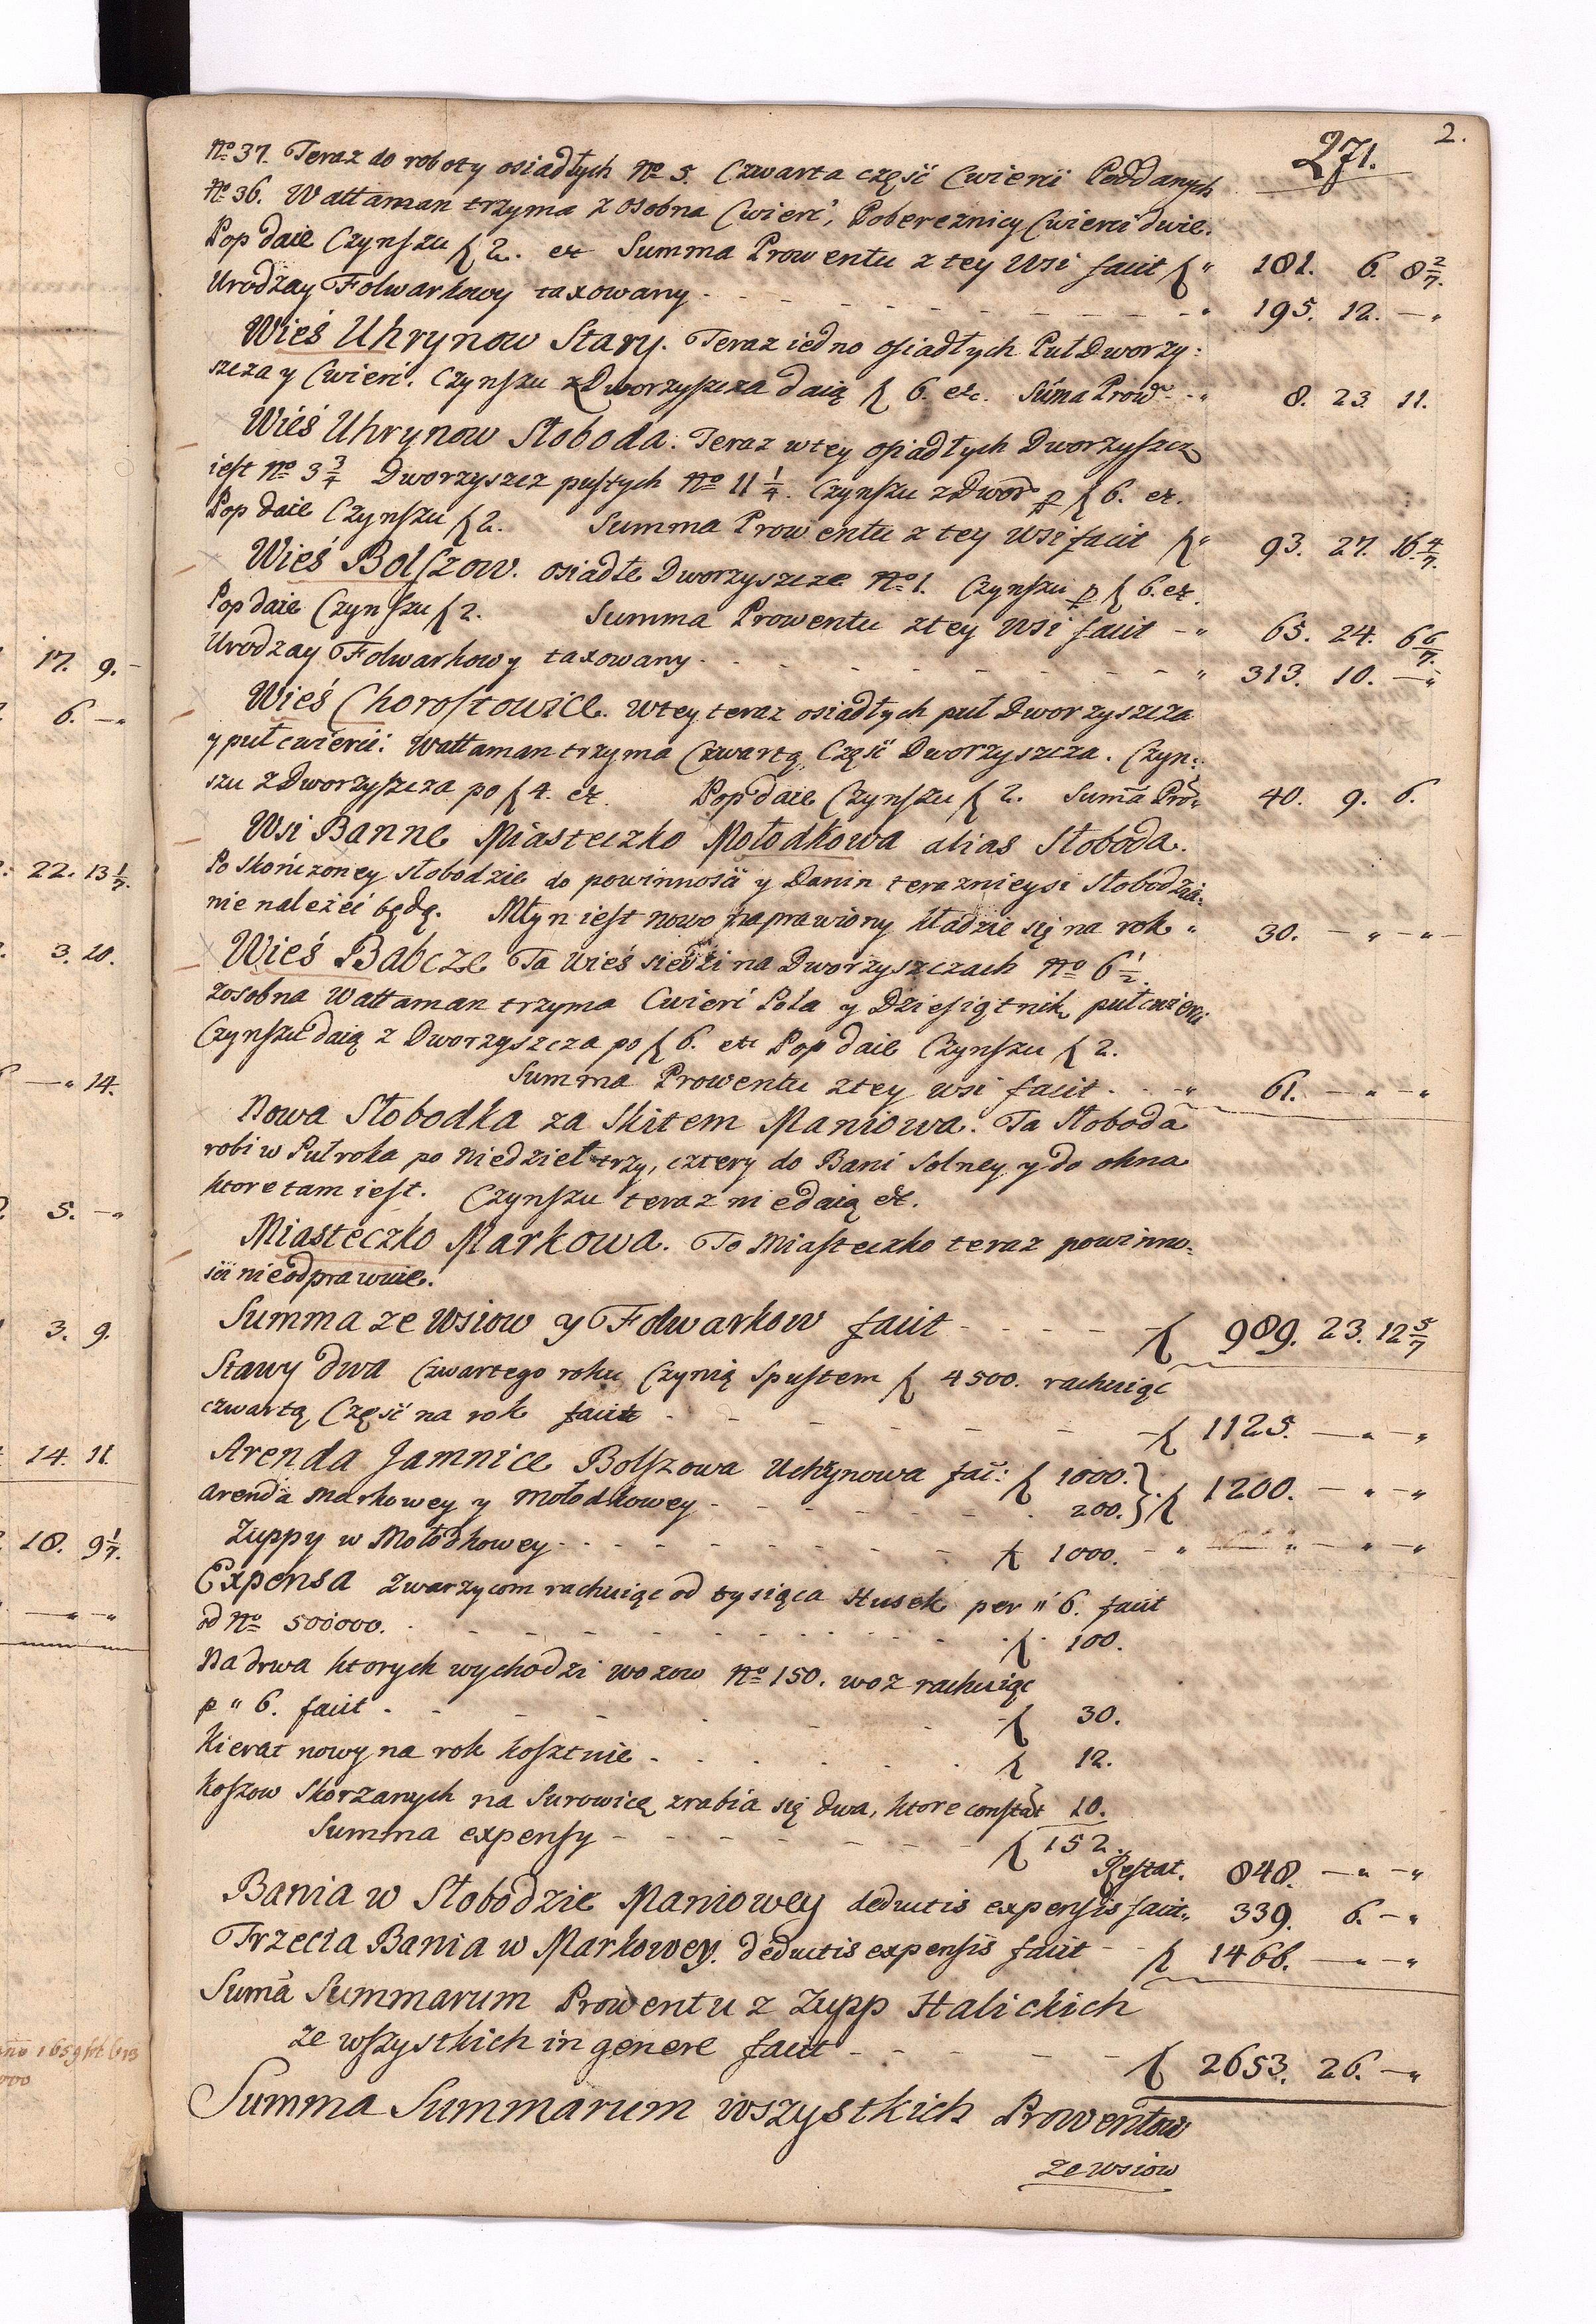 2.
271.
No 37. Teraz do roboty osiadłych No 5. Czwarta część Cwierci Poddanych
No 36. Wattaman trzyma z osobna Cwierć, Pobereznicy Cwierci dwie.
Pop daie Czynszu f 2. etc Summa Prowentu z tey Wsi facit f " 181. 6. 8 2/7.
Urodzay Folwarkowy taxowany - - - " 195. 12. — "
Wieś Uhrynow Stary. Teraz iedno osiadłych Puł Dworzy:
szcza y Cwierć. Czynszu z Dworzyszcza daią f 6. etc. Suma Prow - " 8. 23. 11.
Wieś Uhrynow Słoboda. Teraz w tey osiadłych Dworzyszcz
iest No 3 3/4 Dworzyszcz pustych No 11 1/4. Czynszu z Dwor p f 6. etc.
Pop daie Czynszu f 2. Summa Prowentu z tey Wsi facit f " 93. 27. 16 4/7.
Wieś Bolszow. osiadłe Dworzyszcze No 1. Czynszu p f 6. etc.
Pop daie Czynszu f 2. Summa Prowentu z tey Wsi facit - " 65. 24. 6 6/7.
Urodzay Folwarkowy taxowany - - - " 313. 10. — "
Wieś Chorostowice. W tey teraz osiadłych puł Dworzyszcza
y puł cwierci. Wattaman trzyma Czwartą Część Dworzyszcza. Czyn:
szu z Dworzyszcza po f 4. etc. Pop daie Czynszu f 2. Suma Pro: 40. 9. 6.
Wsi Banne Miasteczko Mołodkowa alias Słoboda.
Po skończoney słobodzie do powinności y Danin teraznieysi Słobodzia:
nie należeć będą. Młyn iest nowo naprawiony kładzie się na rok " 30. — " — "
Wieś Babcze Ta Wieś siedzi na Dworzyszczach No 6 1/2.
zosobna Wattaman trzyma Cwierć Pola y Dziesiątnik puł cwierci
Czynszu daią z Dworzyszcza po f 6. etc Pop daie Czynszu f 2.
Summa Prowentu z tey wsi facit - - " 61. — " — "
Nowa Słobodka za Skitem Maniowa. Ta Słoboda
robi w Puł roka po Niedziel trzy, cztery do Bani Solney y do okna
ktore tam iest. Czynszu teraz nie daią etc.
Miasteczko Markowa. To Miasteczko teraz powinno:
ści nieodprawuie.
Summa ze Wsiow y Folwarkow facit - - - f 989. 23. 12 5/7
Stawy dwa Czwartego roku Czynią Spustem f 4500. rachuiąc
czwartą Część na rok facit - - - f 1125. — " — "
Arenda Jamnice Bolszowa Uchrynowa fac: f 1000. } f 1200. — " — "
Arenda Markowey y Mołodkowey - - - 200.
Zuppy w Mołodkowey - - - f 1000. - " — " — " — "
Expensa Zwarzycom rachuiąc od tysiąca Husek per " 6. facit
od No 500000. - - - f 100.
Na drwa ktorych wychodzi wozow No 150. woz rachuiąc
p " 6. facit - - - f 30.
Kierat nowy na rok kosztuie - - - f 12.
Koszow Skorzanych na Surowicę zrabia się dwa, ktore constat 10.
Summa expensy - - - f 152.
Restat. 848. — " — "
Bania w Słobodzie Maniowey deductis expensis facit " 339. 6. — "
Trzecia Bania w Markowey. deductis expensis facit - - f 1466. — " — "
Suma Summarum Prowentu z Zupp Halickich
ze wszystkich in genere facit - - - f 2653. 26. — "
Summa Summarum wszystkich Prowentow
ze wsiow
17. 9. -
6. — "
22. 13 1/7.
3. 10.
— " 14.
5. — "
3. 9.
14. 11.
18. 9 1/7.
— " — "